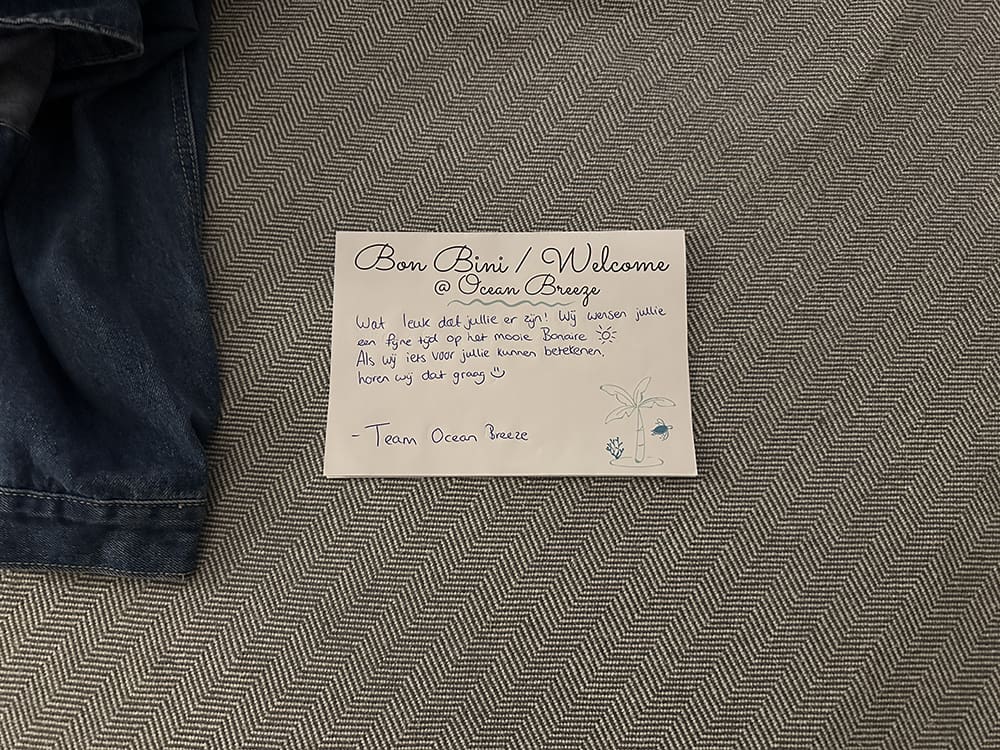 Bon Bini / Welcome
@ Ocean Breeze
Wat leuk dat jullie er zijn! Wij wensen jullie
een fijne tijd op het mooie Bonaire
Als wij iets voor jullie kunnen betekenen,
horen wij dat graag
- Team Ocean Breeze